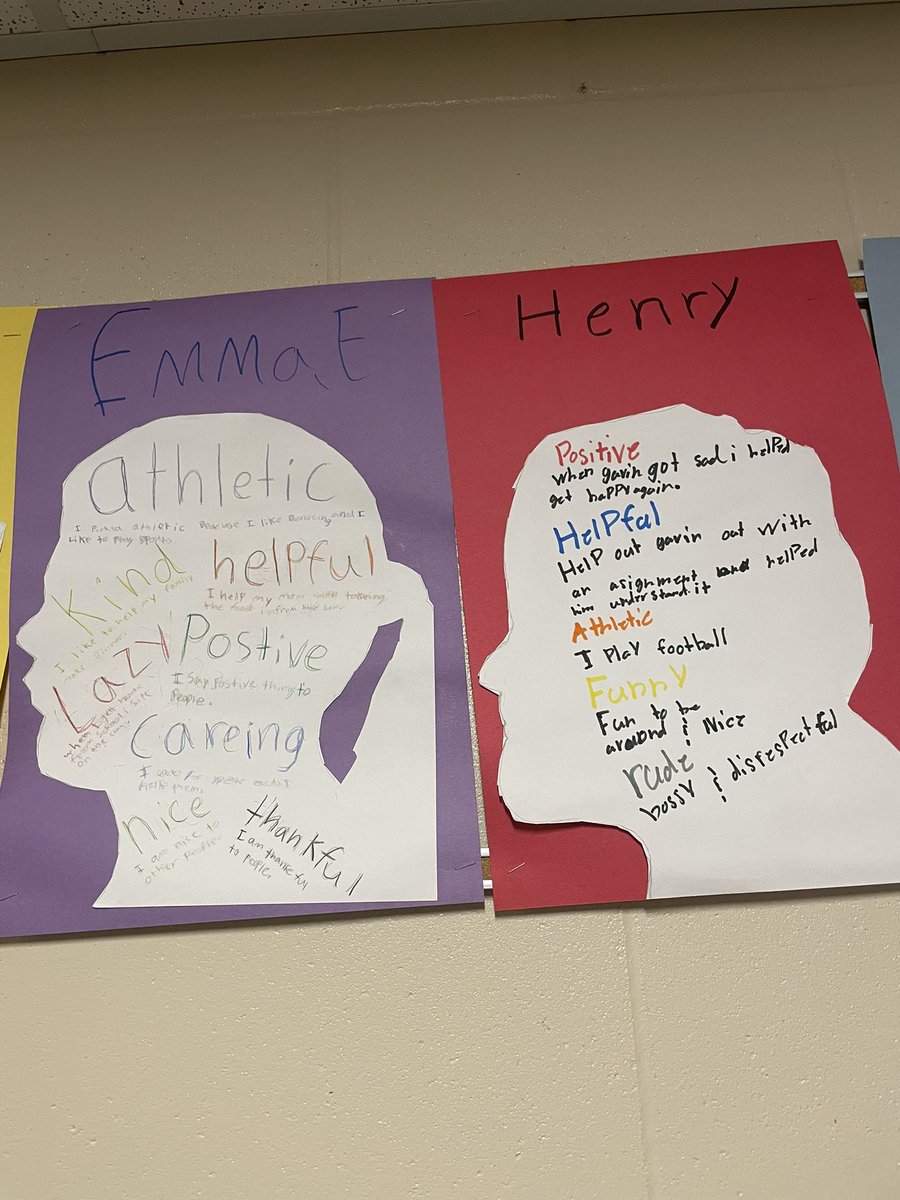 EMMa.E
athletic
I Picked athletic because I like Dancing and I
like to play sports.
Kind
I like to help my family
make dinner.
helpful
I help my mom with takeing
the food in from the car.
Lazy
when I get home
from school I site
on the couch
Postive
I say postive thing to
People.
careing
I care for people and I
help them.
nice
I am nice to
other people.
thankful
I am thankful
to people.
Henry
Positive
when gavin got sad i helped
get happy again.
Helpful
Help out gavin out with
an asignment and helped
him understand.it
Athletic
I Play football
Funny
Fun to be
around & Nice
rude
bossy & disrespectful